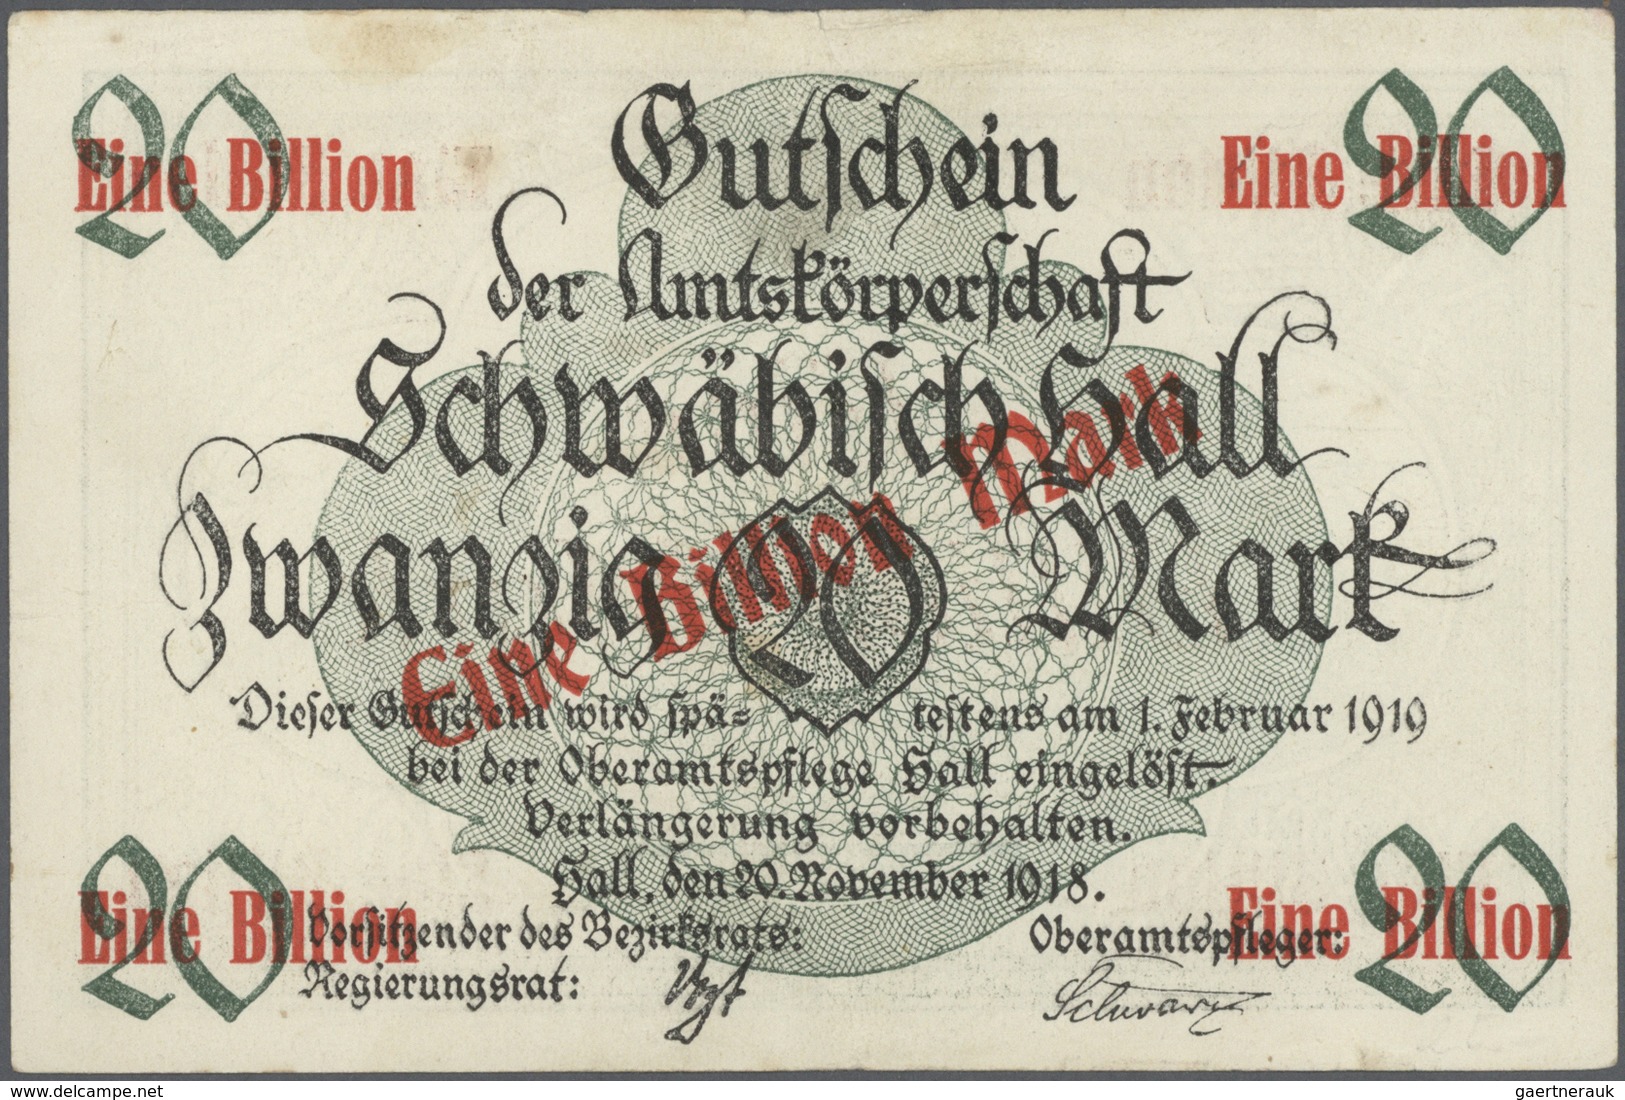 20 Eine Billion
20 Eine Billion
Gutschein
der Amtskörperschaft
Schwäbisch Hall
Zwanzig 20 Mark
Eine Billion Mark
Dieser Gutschein wird spä= testens am 1. Februar 1919
bei der Oberamtspflege Hall eingelöst.
Verlängerung vorbehalten.
Hall, den 20. November 1918.
20 Eine Billion
20 Eine Billion
Vorsitzender des Bezirksrats:
Oberamtspfleger:
Regierungsrat:
Schwarz
delcampe.net
gaertnerauk